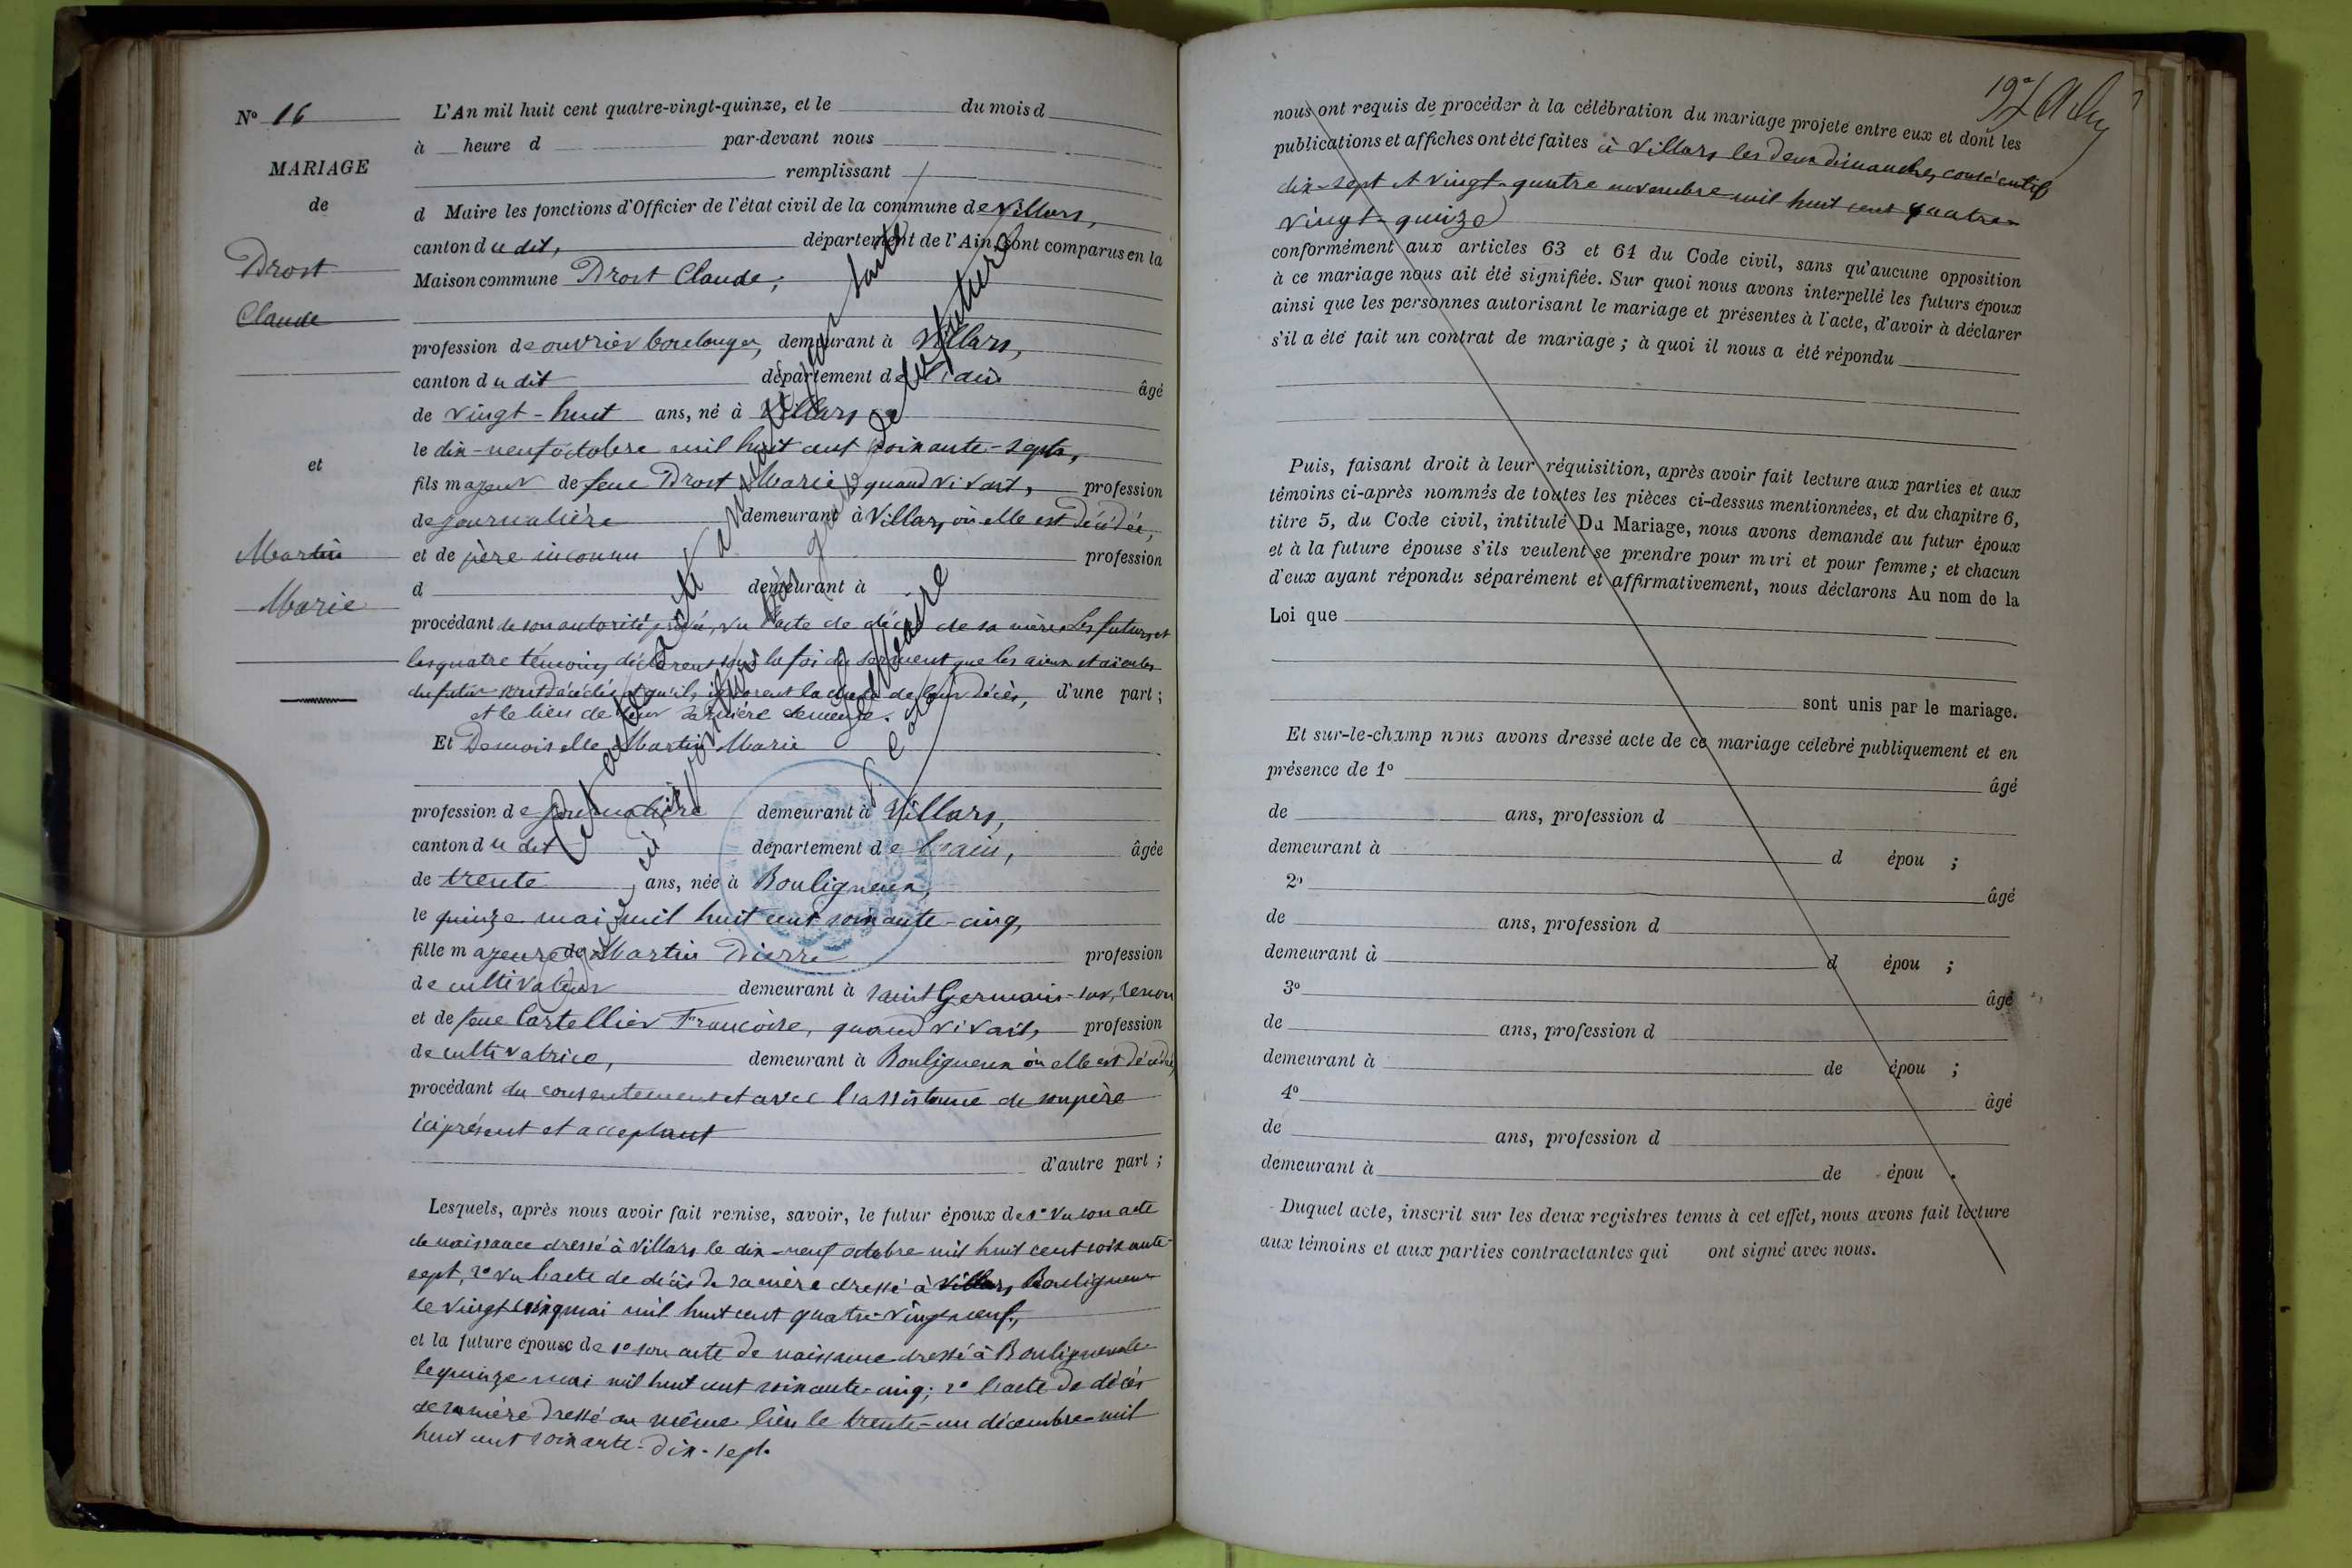 N° 16
MARIAGE
de
Drost
Claude
et
Martin
Marie
L'An mil huit cent quatre-vingt-quinze, et le du mois d
à heure d par-devant nous
remplissant
d Maire les fonctions d'Officier de l'état civil de la commune de Villars,
canton dudit, département de l'Ain, sont comparus en la
Maison commune Drost Claude,
profession de ouvrier boulanger, demeurant à Villars,
canton dudit département de l'ain âgé
de vingt-huit ans, né à Villars
le dix-neuf octobre mil huit cent soixante-sept,
fils majeur de feue Drost Marie, quand vivait, profession
de journalière demeurant à Villars, où elle est décédée,
et de père inconnu profession
d demeurant à
procédant de son autorité privée, vu l'acte de décès de sa mère. Les futurs et
les quatre témoins déclarent sous la foi du serment que les aïeux et aïeules
du futur sont décédés et qu'ils ignorent la date de leur décès, d'une part ;
et le lieu de leur dernière demeure.
Et Demoiselle Martin Marie
profession de journalière demeurant à Villars,
canton dudit département de l'ain, âgée
de trente ans, née à Bouligneux,
le quinze mai mil huit cent soixante-cinq,
fille majeure de Martin Pierre profession
de cultivateur demeurant à Saint Germain-sur-renon
et de feue Cartellier Françoise, quand vivait, profession
de cultivatrice, demeurant à Bouligneux où elle est décédée
procédant du consentement et avec l'assistance de son père
ici présent et acceptant
d'autre part ;
Lesquels, après nous avoir fait remise, savoir, le futur époux de 1° vu son acte
de naissance dressé à Villars le dix-neuf octobre mil huit cent soixante-
sept, 2° vu l'acte de décès de sa mère dressé à Villars Bouligneux
le vingt cinq mai mil huit cent quatre-vingt-neuf,
et la future épouse de 1° son acte de naissance dressé à Bouligneux le
le quinze mai mil huit cent soixante-cinq; 2° l'acte de décès
de sa mère dressé au même lieu le trente-un décembre mil
huit cent soixante-dix-sept.
Cet acte a été annulé
de la future
Le Maire
nous ont requis de procéder à la célébration du mariage projeté entre eux et dont les
publications et affiches ont été faites à Villars les deux dimanches consécutifs
dix-sept et vingt-quatre novembre mil huit cent quatre-
vingt-quinze
conformément aux articles 63 et 64 du Code civil, sans qu'aucune opposition
à ce mariage nous ait été signifiée. Sur quoi nous avons interpellé les futurs époux
ainsi que les personnes autorisant le mariage et présentes à l'acte, d'avoir à déclarer
s'il a été fait un contrat de mariage ; à quoi il nous a été répondu
Puis, faisant droit à leur réquisition, après avoir fait lecture aux parties et aux
témoins ci-après nommés de toutes les pièces ci-dessus mentionnées, et du chapitre 6,
titre 5, du Code civil, intitulé Du Mariage, nous avons demandé au futur époux
et à la future épouse s'ils veulent se prendre pour mari et pour femme ; et chacun
d'eux ayant répondu séparément et affirmativement, nous déclarons Au nom de la
Loi que
sont unis par le mariage.
Et sur-le-champ nous avons dressé acte de ce mariage célébré publiquement et en
présence de 1° âgé
de ans, profession d
demeurant à d épou ;
2° âgé
de ans, profession d
demeurant à d épou ;
3° âgé
de ans, profession d
demeurant à de épou ;
4° âgé
de ans, profession d
demeurant à de épou .
Duquel acte, inscrit sur les deux registres tenus à cet effet, nous avons fait lecture
aux témoins et aux parties contractantes qui ont signé avec nous.